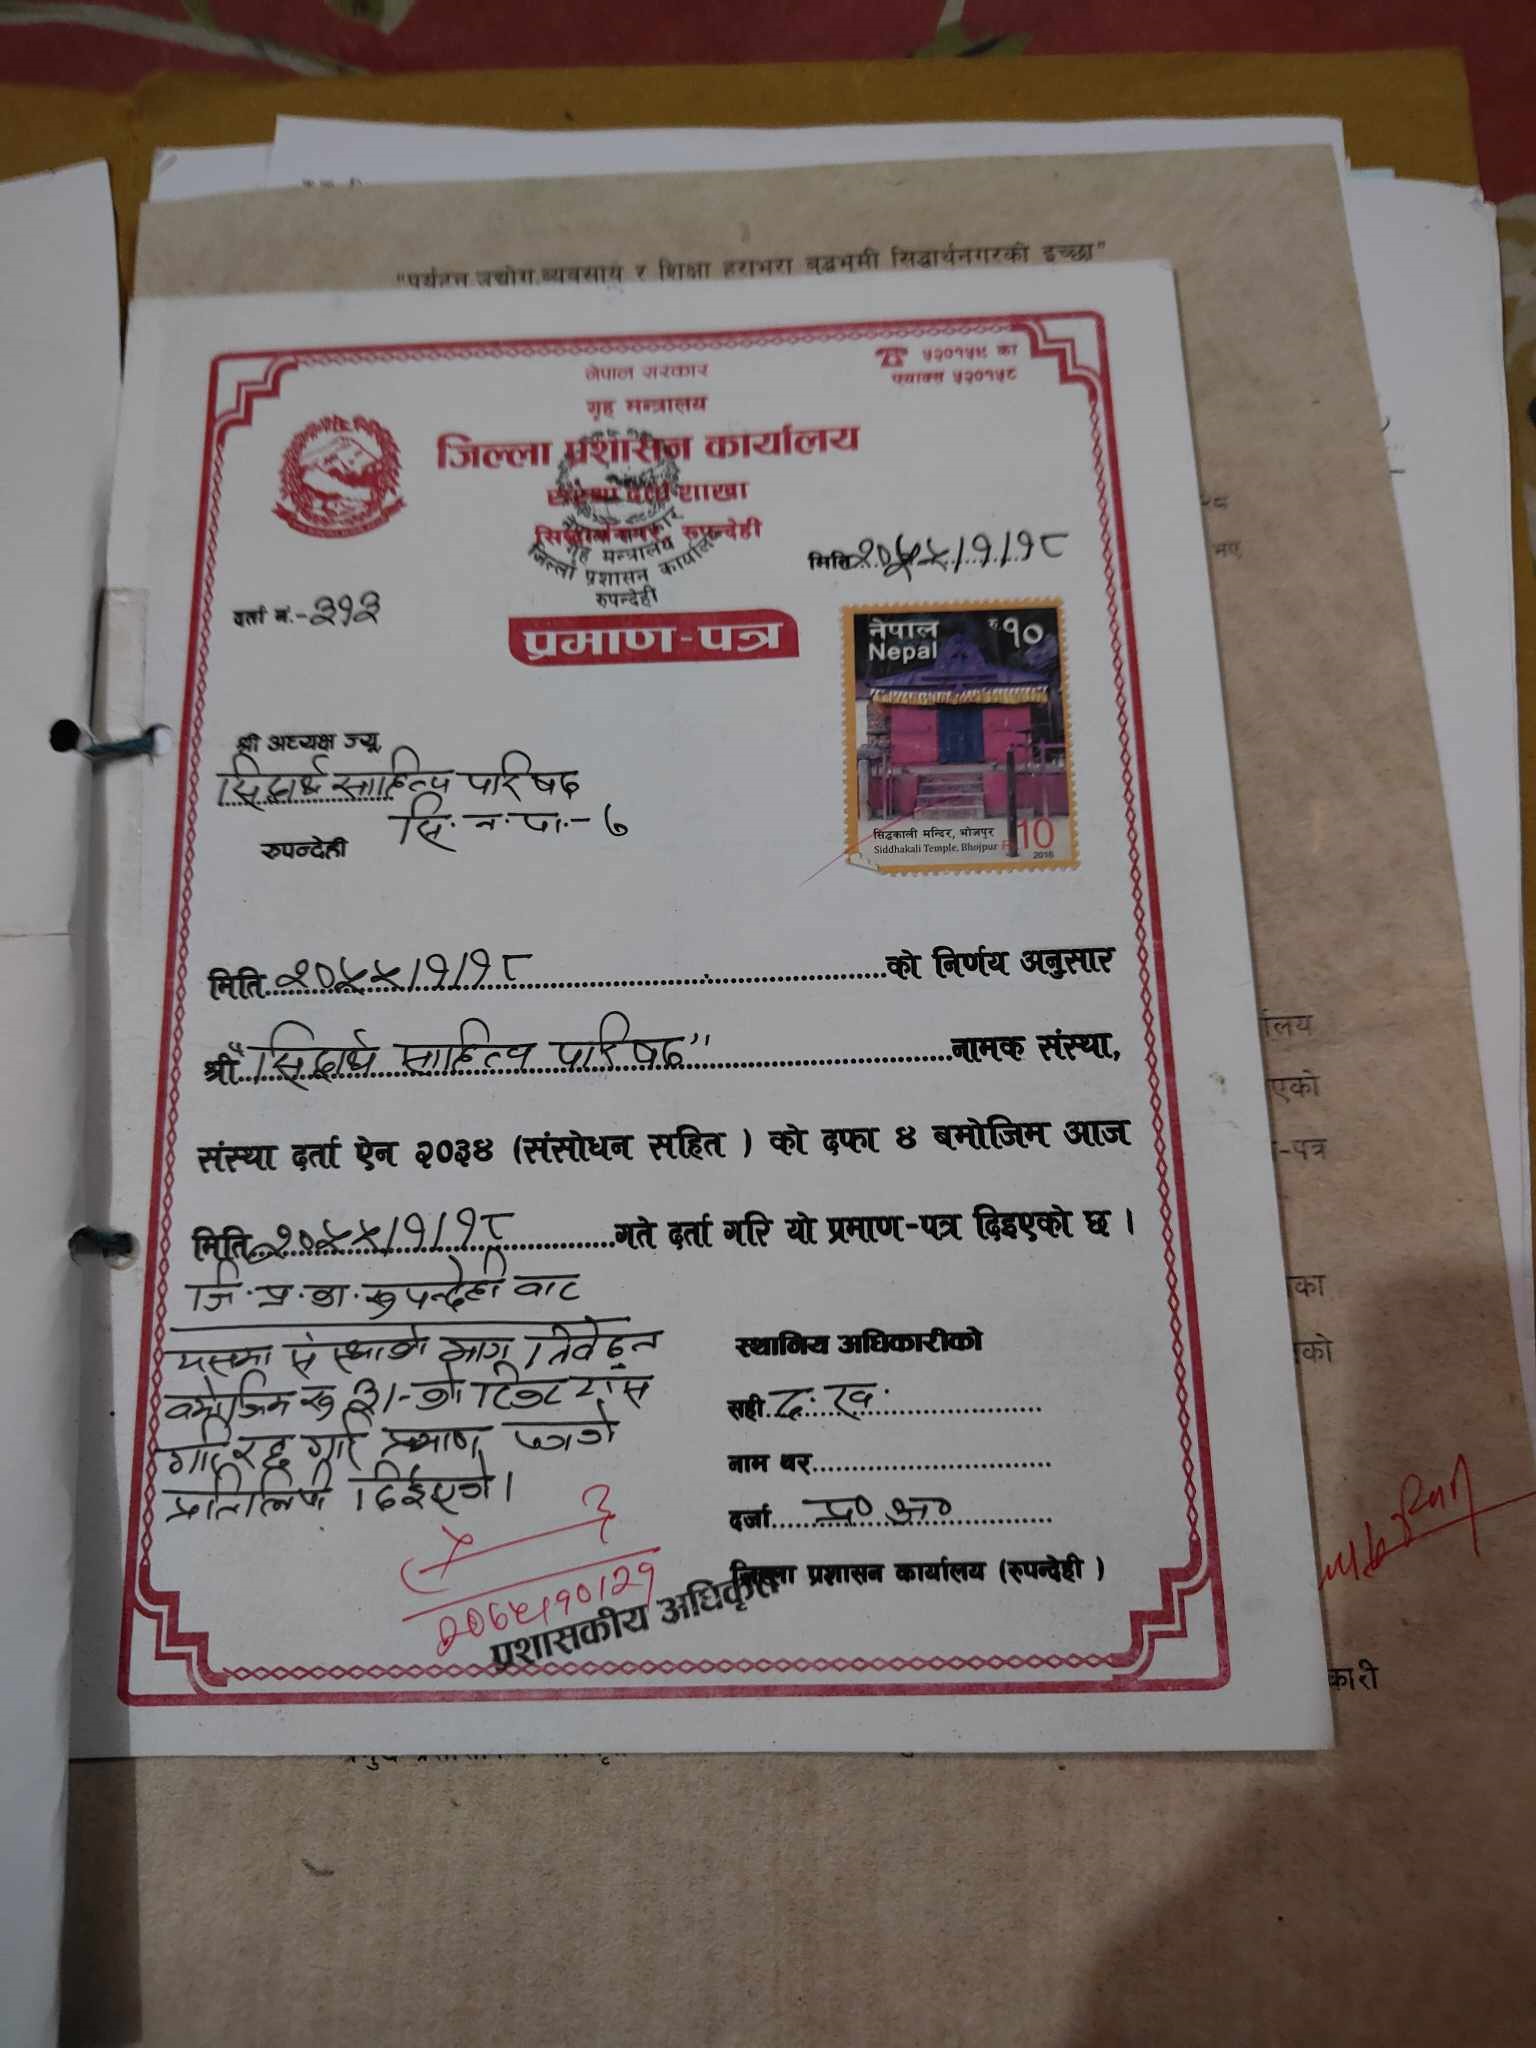 "पर्यटन उद्योग व्यवसाय र शिक्षा हराभरा बुद्धभूमी सिद्धार्थनगरको इच्छा"
नेपाल सरकार
गृह मन्त्रालय
जिल्ला प्रशासन कार्यालय
संस्था दर्ता शाखा
सिद्धार्थनगर, रुपन्देही
☎ ५२०१५४ का
फ्याक्स ५२०१५८
नेपाल सरकार
गृह मन्त्रालय
जिल्ला प्रशासन कार्यालय
रुपन्देही
मिति २०५५/१/१८
दर्ता नं.-३१३
प्रमाण-पत्र
नेपाल रु.१०
Nepal
सिद्धकाली मन्दिर, भोजपुर
Siddhakali Temple, Bhojpur 10
2016
श्री अध्यक्ष ज्यू,
सिद्धार्थ साहित्य परिषद
सि.न.पा.-७
रुपन्देही
मिति २०५५/१/१८ को निर्णय अनुसार
श्री "सिद्धार्थ साहित्य परिषद" नामक संस्था,
संस्था दर्ता ऐन २०३४ (संसोधन सहित ) को दफा ४ बमोजिम आज
मिति २०५५/१/१८ गते दर्ता गरि यो प्रमाण-पत्र दिइएको छ ।
जि.प्र.का.रुपन्देही बाट
यसमा संस्थाको माग निवेदन
बमोजिम रु ३/- को टिकट टाँस
गरि रद्द गरि प्रमाण पत्रको
प्रतिलिपी दिईएको।
स्थानिय अधिकारीको
सही द.ख.
नाम थर
दर्जा प्र० अ०
जिल्ला प्रशासन कार्यालय (रुपन्देही )
प्रशासकीय अधिकृत
एको
-पत्र
कारी